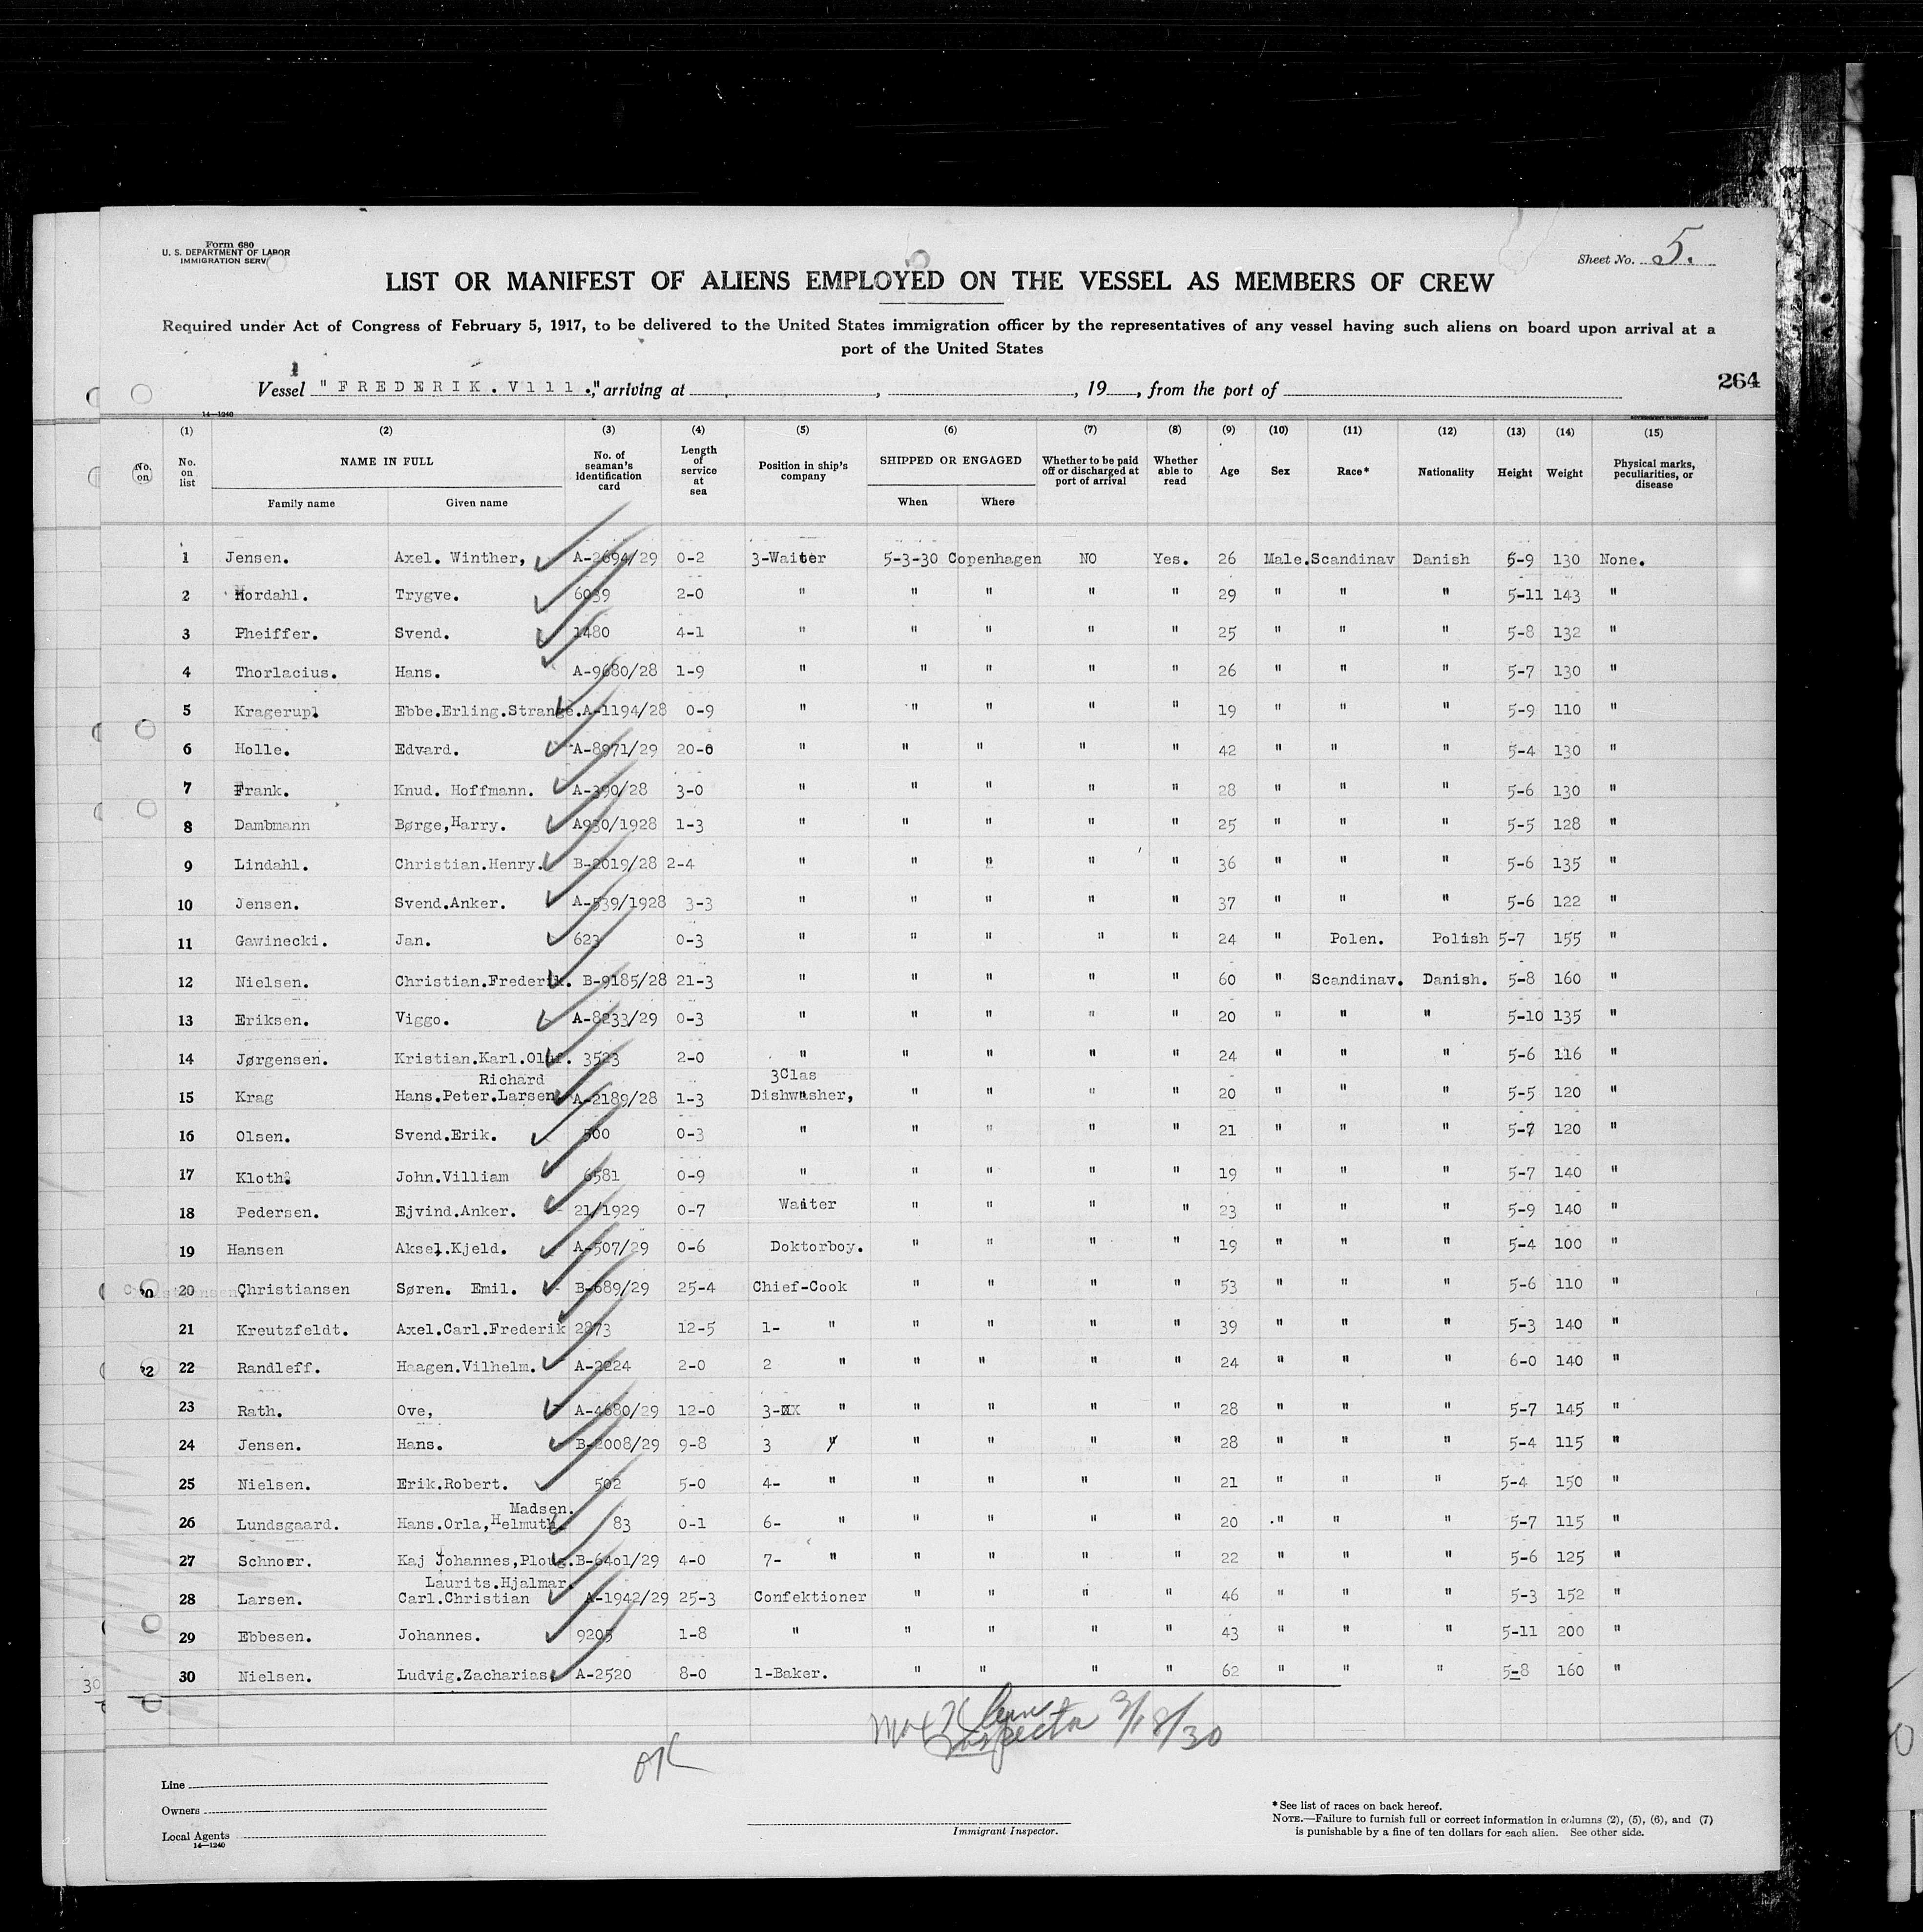 Form 680
U. S. DEPARTMENT OF LABOR
IMMIGRATION SERV
Sheet No. 5.
LIST OR MANIFEST OF ALIENS EMPLOYED ON THE VESSEL AS MEMBERS OF CREW
Required under Act of Congress of February 5, 1917, to be delivered to the United States immigration officer by the representatives of any vessel having such aliens on board upon arrival at a
port of the United States
Vessel "FREDERIK.V111.", arriving at , , 19 , from the port of
264
14—1240
(1) (2) (3) (4) (5) (6) (7) (8) (9) (10) (11) (12) (13) (14) (15)
No. on list NAME IN FULL No. of seaman's identification card Length of service at sea Position in ship's company SHIPPED OR ENGAGED Whether to be paid off or discharged at port of arrival Whether able to read Age Sex Race* Nationality Height Weight Physical marks, peculiarities, or disease
Family name Given name When Where
1 Jensen. Axel. Winther, A-2694/29 0-2 3-Waiter 5-3-30 Copenhagen NO Yes. 26 Male. Scandinav Danish 5-9 130 None.
2 Nordahl. Trygve. 6039 2-0 " " " " " 29 " " " 5-11 143 "
3 Pheiffer. Svend. 1480 4-1 " " " " " 25 " " " 5-8 132 "
4 Thorlacius. Hans. A-9680/28 1-9 " " " " " 26 " " " 5-7 130 "
5 Kragerup. Ebbe.Erling.Strange. A-1194/28 0-9 " " " " " 19 " " " 5-9 110 "
6 Holle. Edvard. A-8971/29 20-0 " " " " " 42 " " " 5-4 130 "
7 Frank. Knud. Hoffmann. A-390/28 3-0 " " " " " 28 " " " 5-6 130 "
8 Dambmann Børge,Harry. A930/1928 1-3 " " " " " 25 " " " 5-5 128 "
9 Lindahl. Christian.Henry. B-2019/28 2-4 " " " " " 36 " " " 5-6 135 "
10 Jensen. Svend.Anker. A-539/1928 3-3 " " " " " 37 " " " 5-6 122 "
11 Gawinecki. Jan. 623 0-3 " " " " " 24 " Polen. Polish 5-7 155 "
12 Nielsen. Christian.Frederik. B-9185/28 21-3 " " " " " 60 " Scandinav. Danish. 5-8 160 "
13 Eriksen. Viggo. A-8233/29 0-3 " " " " " 20 " " " 5-10 135 "
14 Jørgensen. Kristian.Karl.Oluf. 3523 2-0 " " " " " 24 " " " 5-6 116 "
Richard 3Clas
15 Krag Hans.Peter.Larsen. A-2189/28 1-3 Dishwasher, " " " " 20 " " " 5-5 120 "
16 Olsen. Svend.Erik. 500 0-3 " " " " " 21 " " " 5-7 120 "
17 Kloth. John.Villiam 6581 0-9 " " " " " 19 " " " 5-7 140 "
18 Pedersen. Ejvind.Anker. 21/1929 0-7 Waiter " " " " 23 " " " 5-9 140 "
19 Hansen Aksel.Kjeld. A-507/29 0-6 Doktorboy. " " " " 19 " " " 5-4 100 "
20 Christiansen Søren. Emil. B-689/29 25-4 Chief-Cook " " " " 53 " " " 5-6 110 "
21 Kreutzfeldt. Axel.Carl.Frederik 2873 12-5 1- " " " " " 39 " " " 5-3 140 "
22 Randleff. Haagen.Vilhelm. A-2224 2-0 2 " " " " " 24 " " " 6-0 140 "
23 Rath. Ove, A-4680/29 12-0 3-XX " " " " " 28 " " " 5-7 145 "
24 Jensen. Hans. B-2008/29 9-8 3 " " " " " 28 " " " 5-4 115 "
25 Nielsen. Erik.Robert. 502 5-0 4- " " " " " 21 " " " 5-4 150 "
Madsen.
26 Lundsgaard. Hans.Orla,Helmuth. 83 0-1 6- " " " " " 20 " " " 5-7 115 "
27 Schnoer. Kaj Johannes,Ploug. B-6401/29 4-0 7- " " " " " 22 " " " 5-6 125 "
Laurits.Hjalmar.
28 Larsen. Carl.Christian A-1942/29 25-3 Confektioner " " " " 46 " " " 5-3 152 "
29 Ebbesen. Johannes. 9205 1-8 " " " " " 43 " " " 5-11 200 "
30 Nielsen. Ludvig.Zacharias. A-2520 8-0 1-Baker. " " " " 62 " " " 5-8 160 "
Inspector 3/18/30
OK
Line
Owners
Local Agents
14—1240
Immigrant Inspector.
* See list of races on back hereof.
NOTE.—Failure to furnish full or correct information in columns (2), (5), (6), and (7)
is punishable by a fine of ten dollars for each alien. See other side.